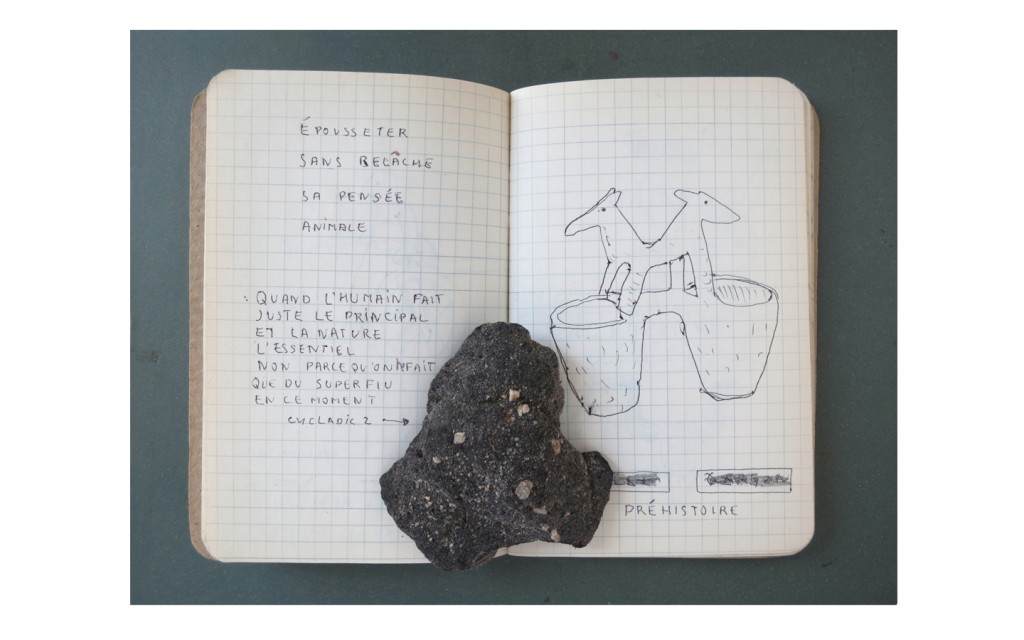 ÉPOUSSETER
SANS RELÂCHE
SA PENSÉE
ANIMALE
: QUAND L'HUMAIN FAIT
JUSTE LE PRINCIPAL
ET LA NATURE
L'ESSENTIEL
NON PARCE QU'ON NFAIT
QUE DU SUPERFLU
EN CE MOMENT
CYCLADIC 2 →
PRÉHISTOIRE